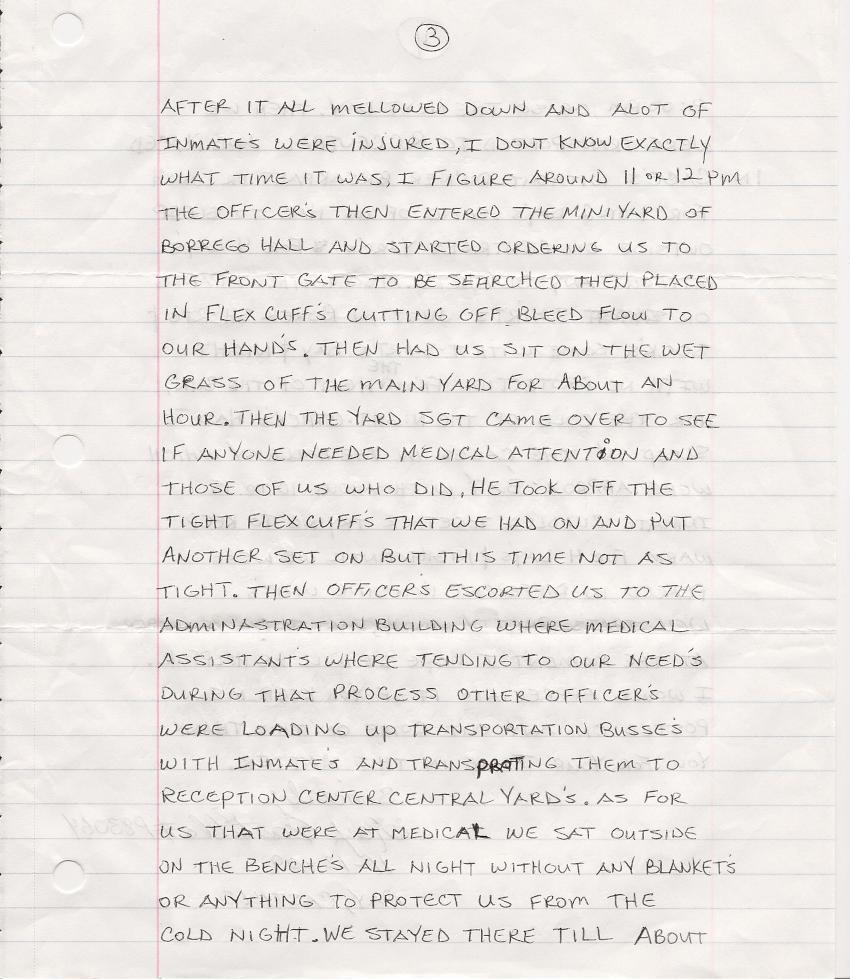 3
AFTER IT ALL MELLOWED DOWN AND ALOT OF
INMATE'S WERE INJURED, I DONT KNOW EXACTLY
WHAT TIME IT WAS, I FIGURE AROUND 11 OR 12 PM
THE OFFICER'S THEN ENTERED THE MINI YARD OF
BORREGO HALL AND STARTED ORDERING US TO
THE FRONT GATE TO BE SEARCHED THEN PLACED
IN FLEX CUFF'S CUTTING OFF BLEED FLOW TO
OUR HAND'S. THEN HAD US SIT ON THE WET
GRASS OF THE MAIN YARD FOR ABOUT AN
HOUR. THEN THE YARD SGT CAME OVER TO SEE
IF ANYONE NEEDED MEDICAL ATTENTION AND
THOSE OF US WHO DID, HE TOOK OFF THE
TIGHT FLEX CUFF'S THAT WE HAD ON AND PUT
ANOTHER SET ON BUT THIS TIME NOT AS
TIGHT. THEN OFFICER'S ESCORTED US TO THE
ADMINASTRATION BUILDING WHERE MEDICAL
ASSISTANT'S WHERE TENDING TO OUR NEED'S
DURING THAT PROCESS OTHER OFFICER'S
WERE LOADING UP TRANSPORTATION BUSSE'S
WITH INMATE'S AND TRANSPROTING THEM TO
RECEPTION CENTER CENTRAL YARD'S. AS FOR
US THAT WERE AT MEDICAL WE SAT OUTSIDE
ON THE BENCHE'S ALL NIGHT WITHOUT ANY BLANKET'S
OR ANYTHING TO PROTECT US FROM THE
COLD NIGHT. WE STAYED THERE TILL ABOUT